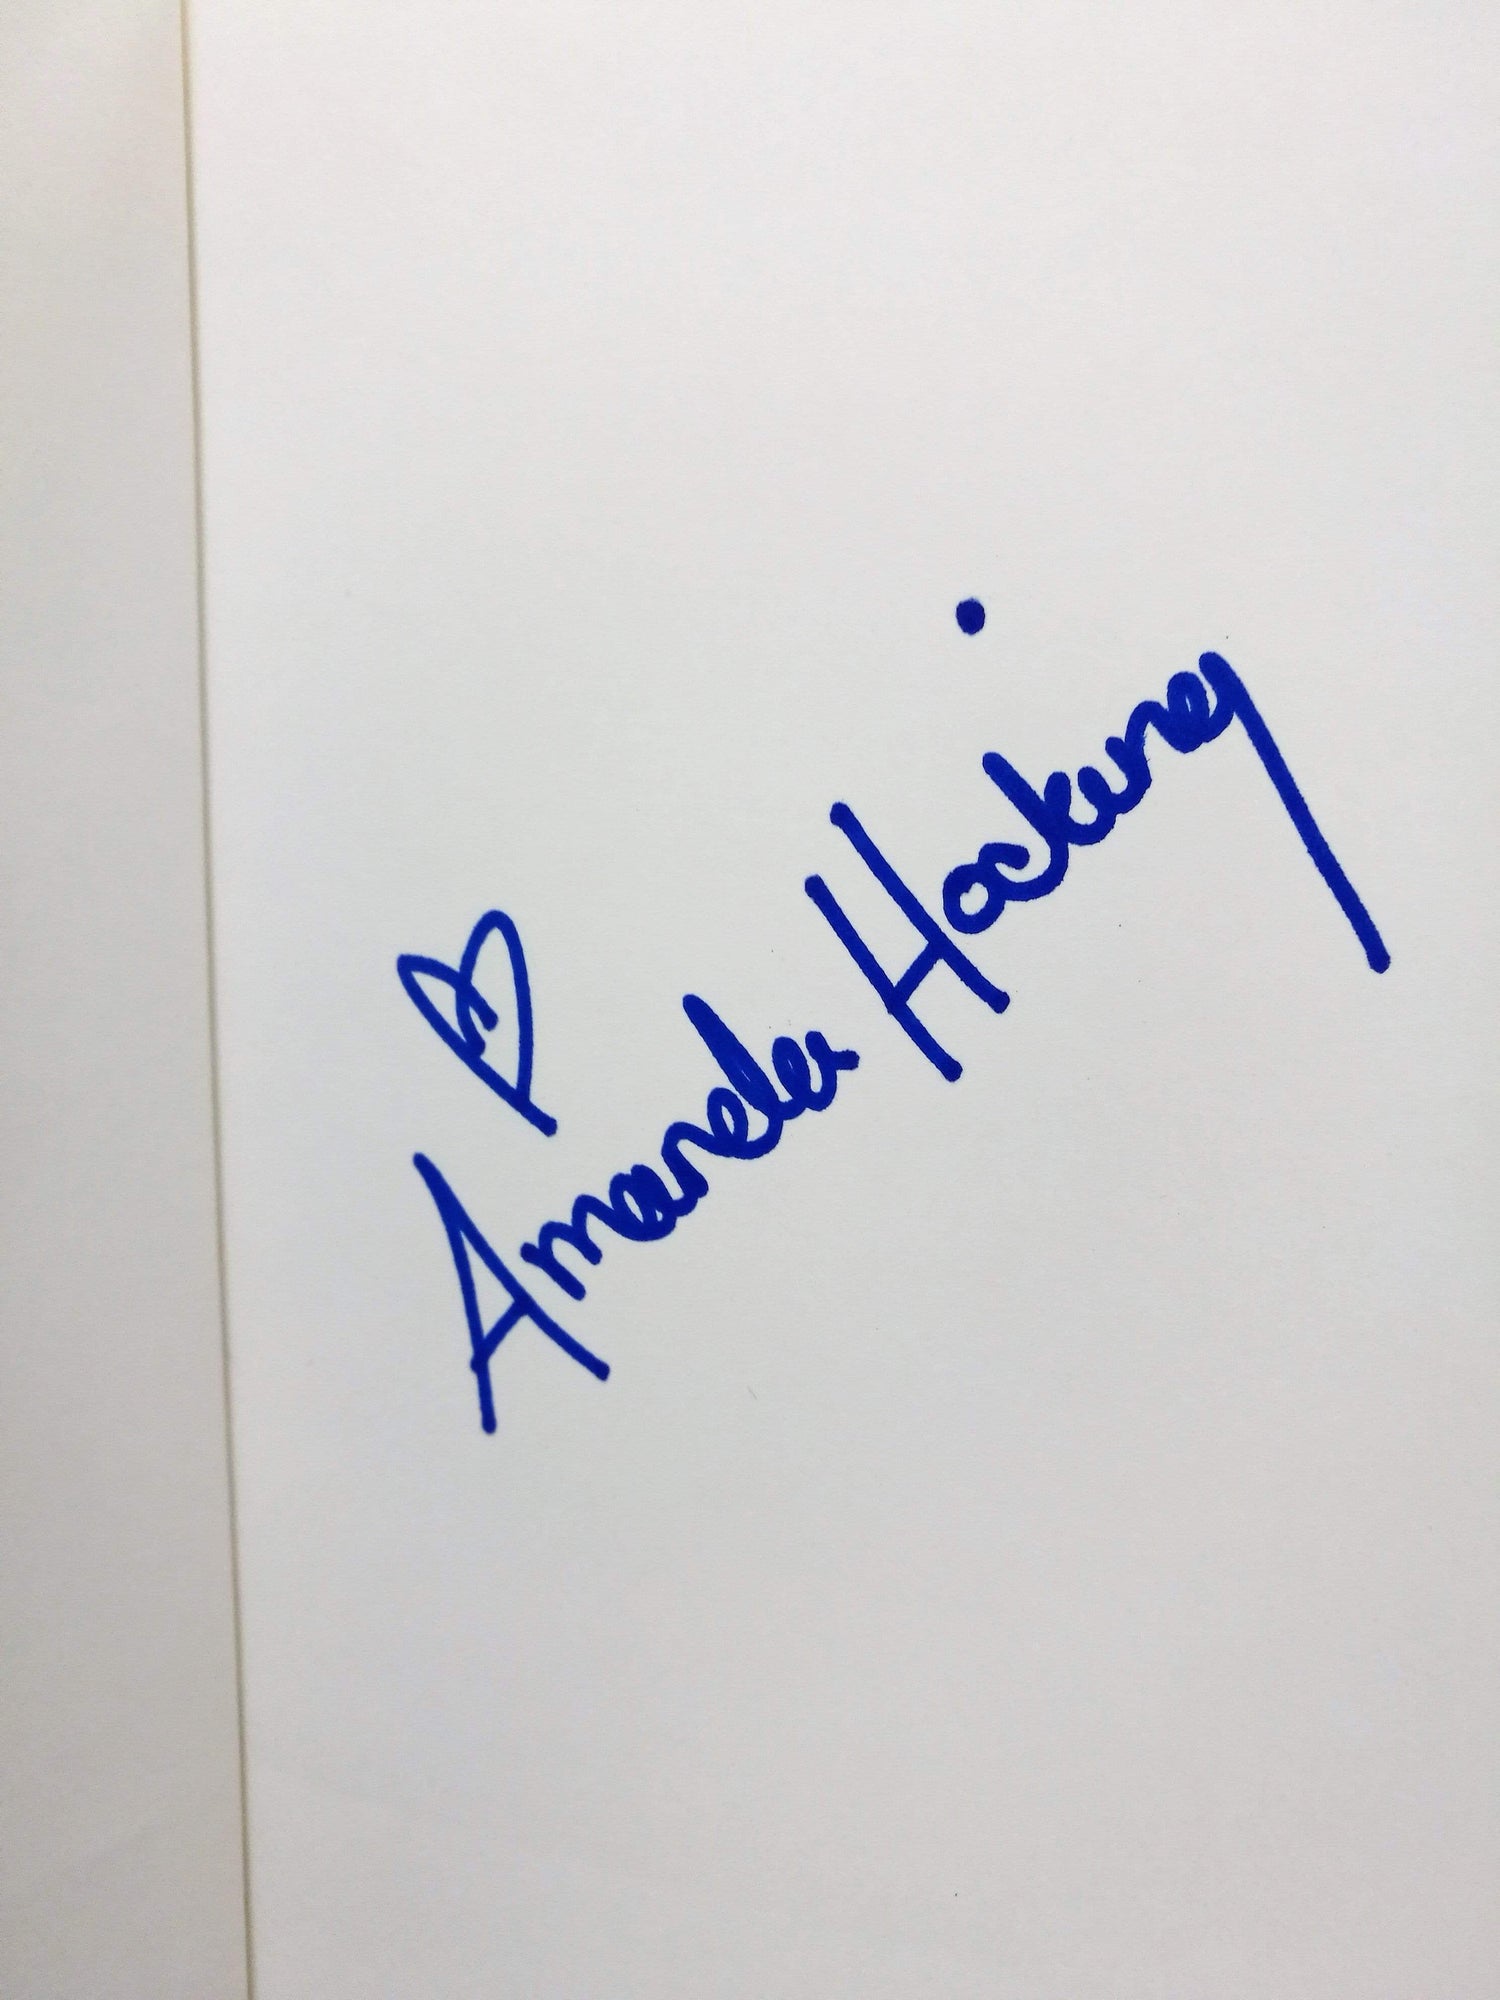 ♡
Amanda Hocking